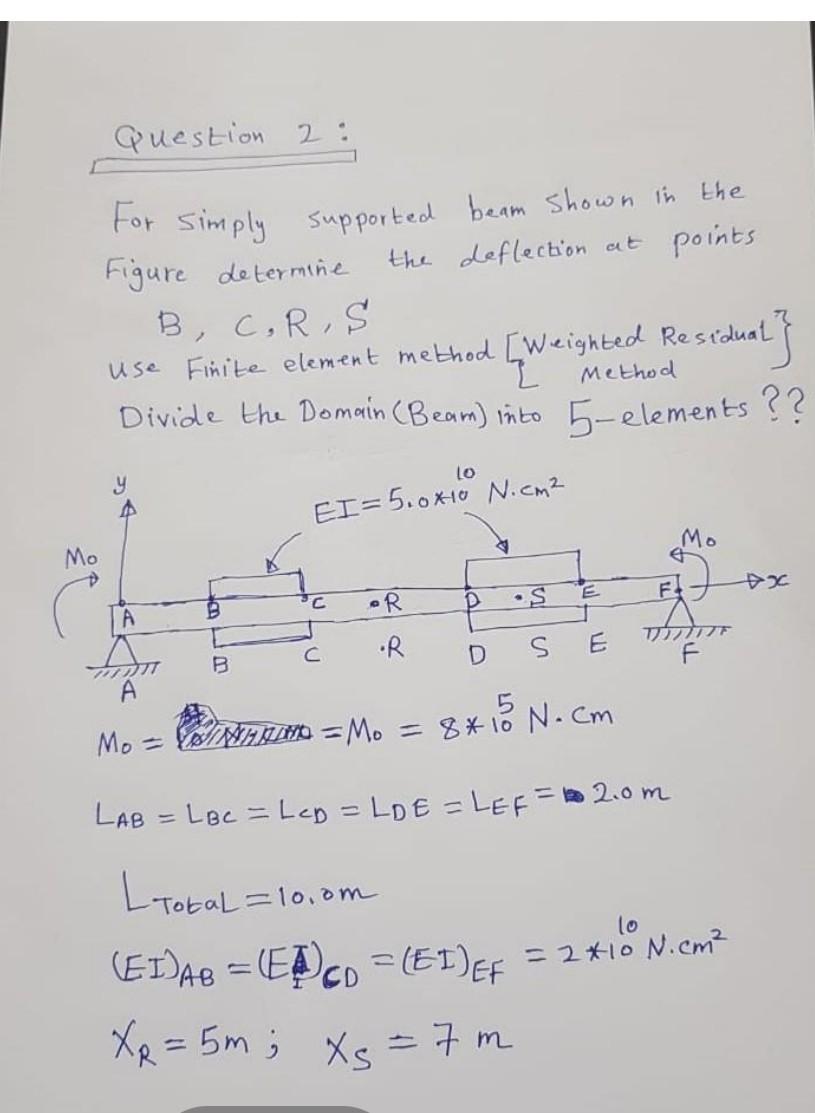 Question 2:
For simply supported beam shown in the
Figure determine the deflection at points
B, C, R, S
use Finite element method [Weighted Residual Method}
Divide the Domain (Beam) into 5-elements ??
y
EI = 5.0*10^10 N.cm²
Mo
Mo
A B C •R D •S E F x
A B C •R D S E F
Mo = = Mo = 8*10^5 N.cm
LAB = LBC = LCD = LDE = LEF = 2.0 m
LTotal = 10.0m
(EI)AB = (EI)CD = (EI)EF = 2*10^10 N.cm²
XR = 5m ; XS = 7 m